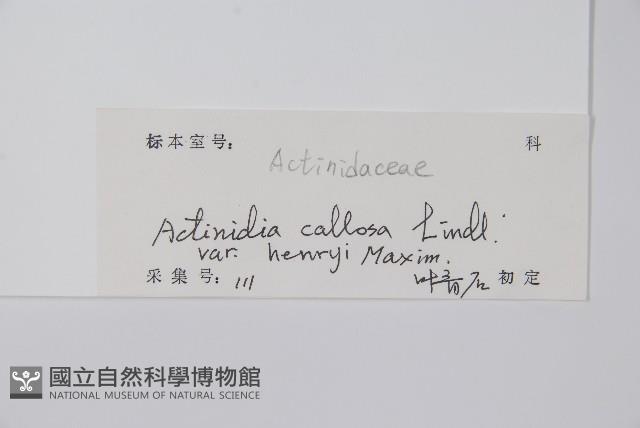 标本室号： 科
Actinidaceae
Actinidia callosa Lindl.
var. henryi Maxim.
采集号： 111 叶青石 初定
國立自然科學博物館
NATIONAL MUSEUM OF NATURAL SCIENCE